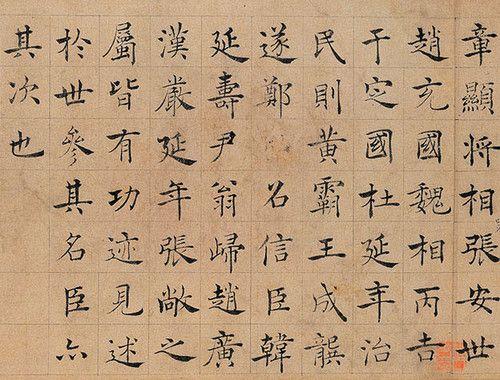 章顯將相張安世
趙充國魏相丙吉
于定國杜延年治
民則黃霸王成龔
遂鄭召信臣韓
延壽尹翁歸趙廣
漢嚴延年張敞之
屬皆有功迹見述
於世參其名臣亦
其次也